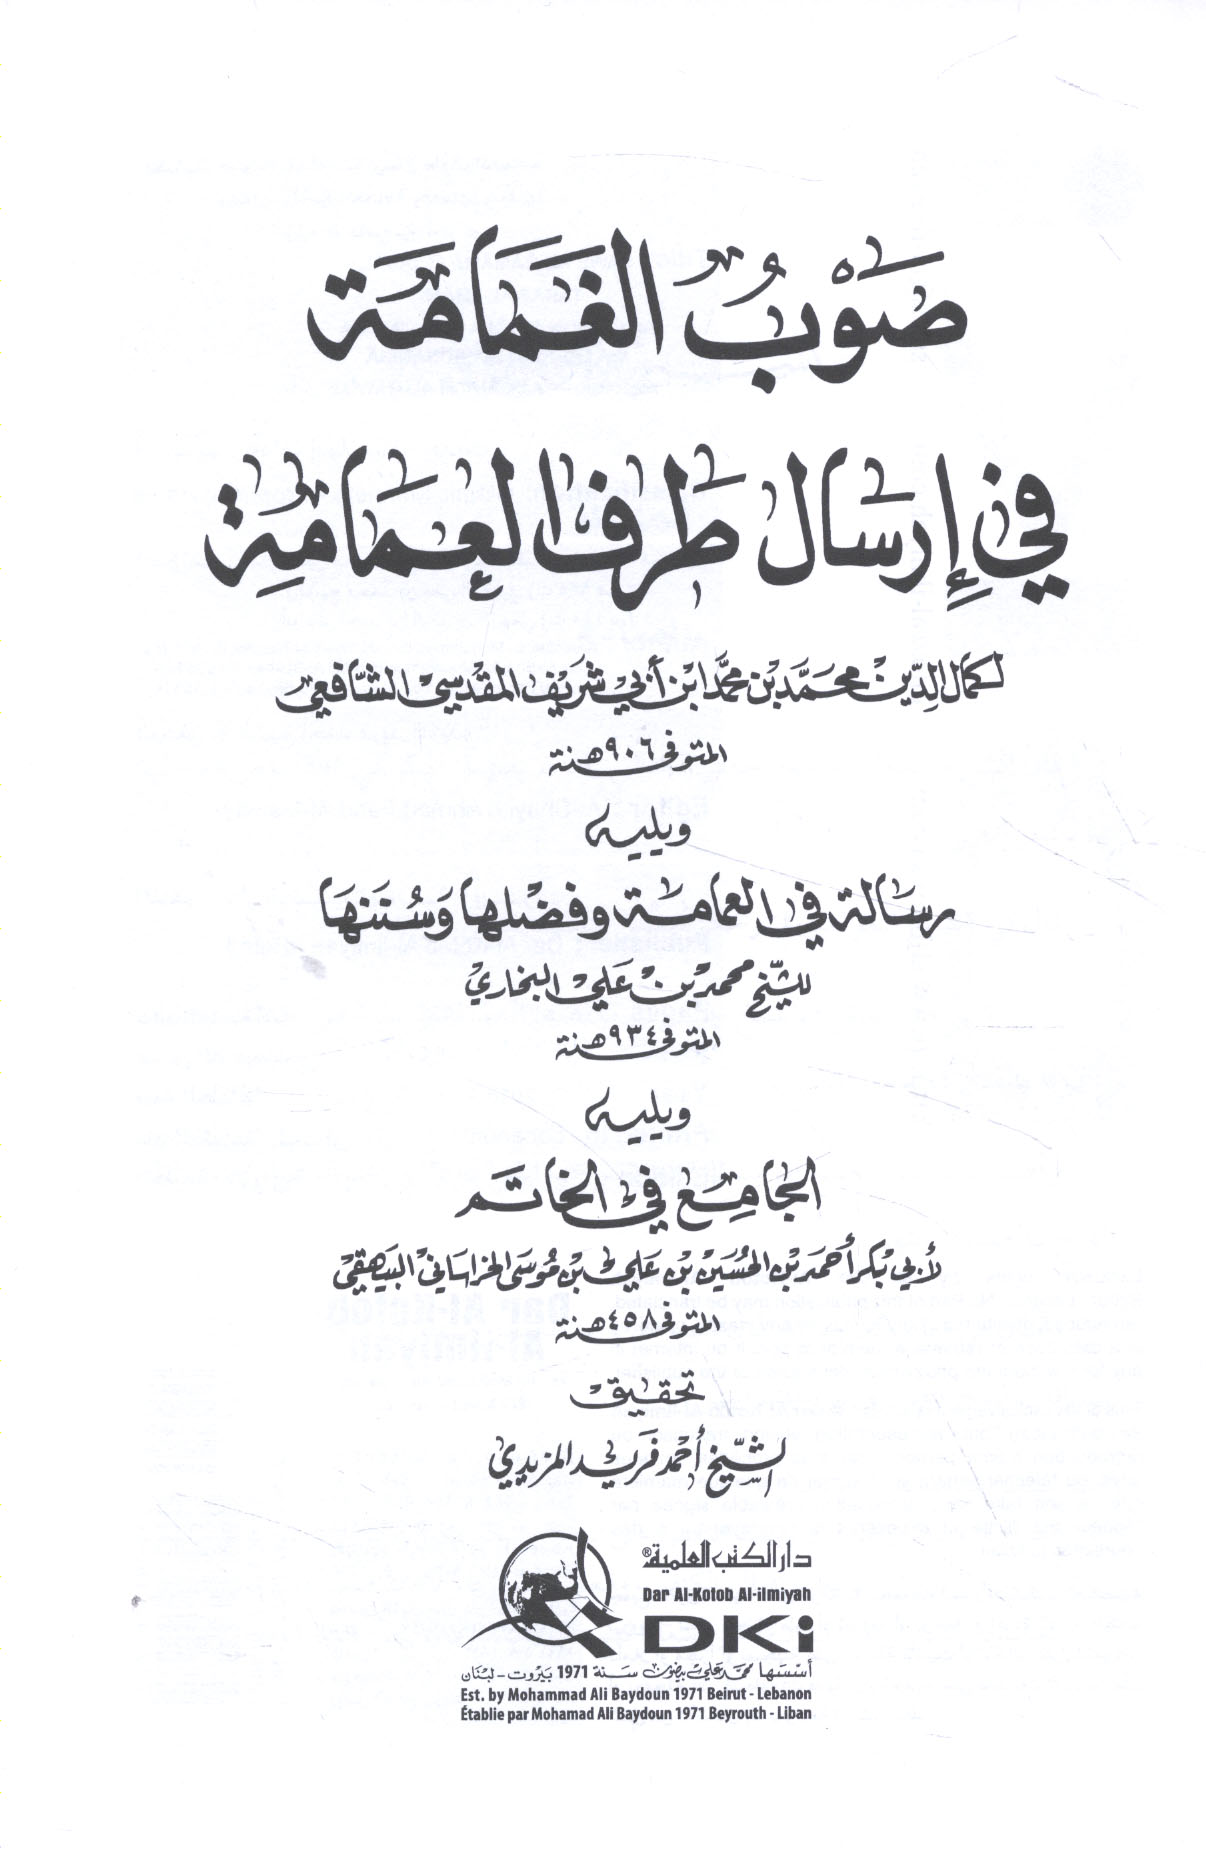 صَوْبُ الغَمَامَة
في إرسال طرف العِمَامَةِ
لكمال الدين محمد بن محمد ابن أبي شريف المقدسي الشافعي
المتوفى ٩٠٦ هـنة
ويليه
رسالة في العمامة وفضلها وسُننها
للشيخ محمد بن علي البخاري
المتوفى ٩٣٤ هـنة
ويليه
الجامع في الخاتم
لأبي بكر أحمد بن الحسين بن علي بن موسى الخراساني البيهقي
المتوفى ٤٥٨ هـنة
تحقيق
الشيخ أحمد فريد المزيدي
دار الكتب العلمية®
Dar Al-Kotob Al-ilmiyah
DKi
أسسها محمد علي بيضون سنة 1971 بيروت - لبنان
Est. by Mohammad Ali Baydoun 1971 Beirut - Lebanon
Établie par Mohamad Ali Baydoun 1971 Beyrouth - Liban